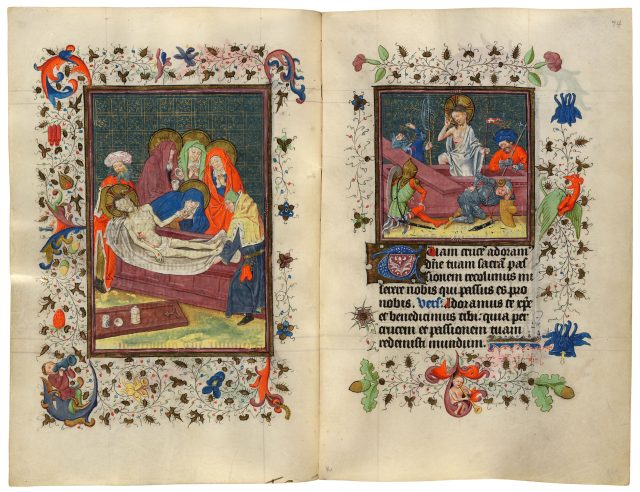 74
Tuam crucē adoram
dñe tuam sacrā pas
sionem recolimus mi
serere nobis qui passus es pro
nobis. Vers. Adoramus te xpe
et benedicimus tibi: quia per
crucem et passionem tuam
redemisti mundum.